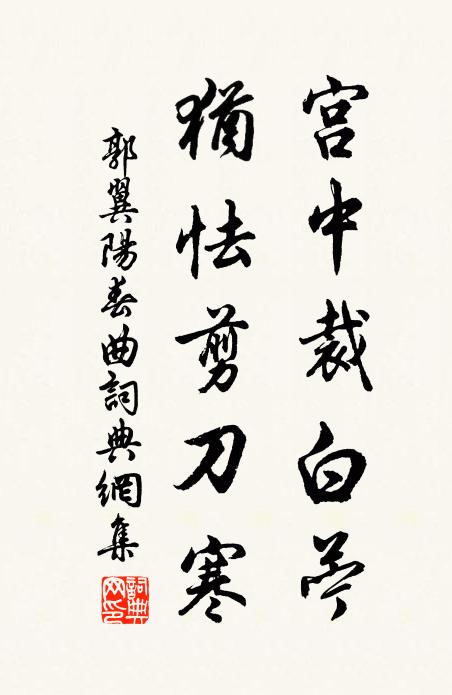 宫中裁白苧
猶怯剪刀寒
郭翼陽春曲詞典網集
詞典
网印